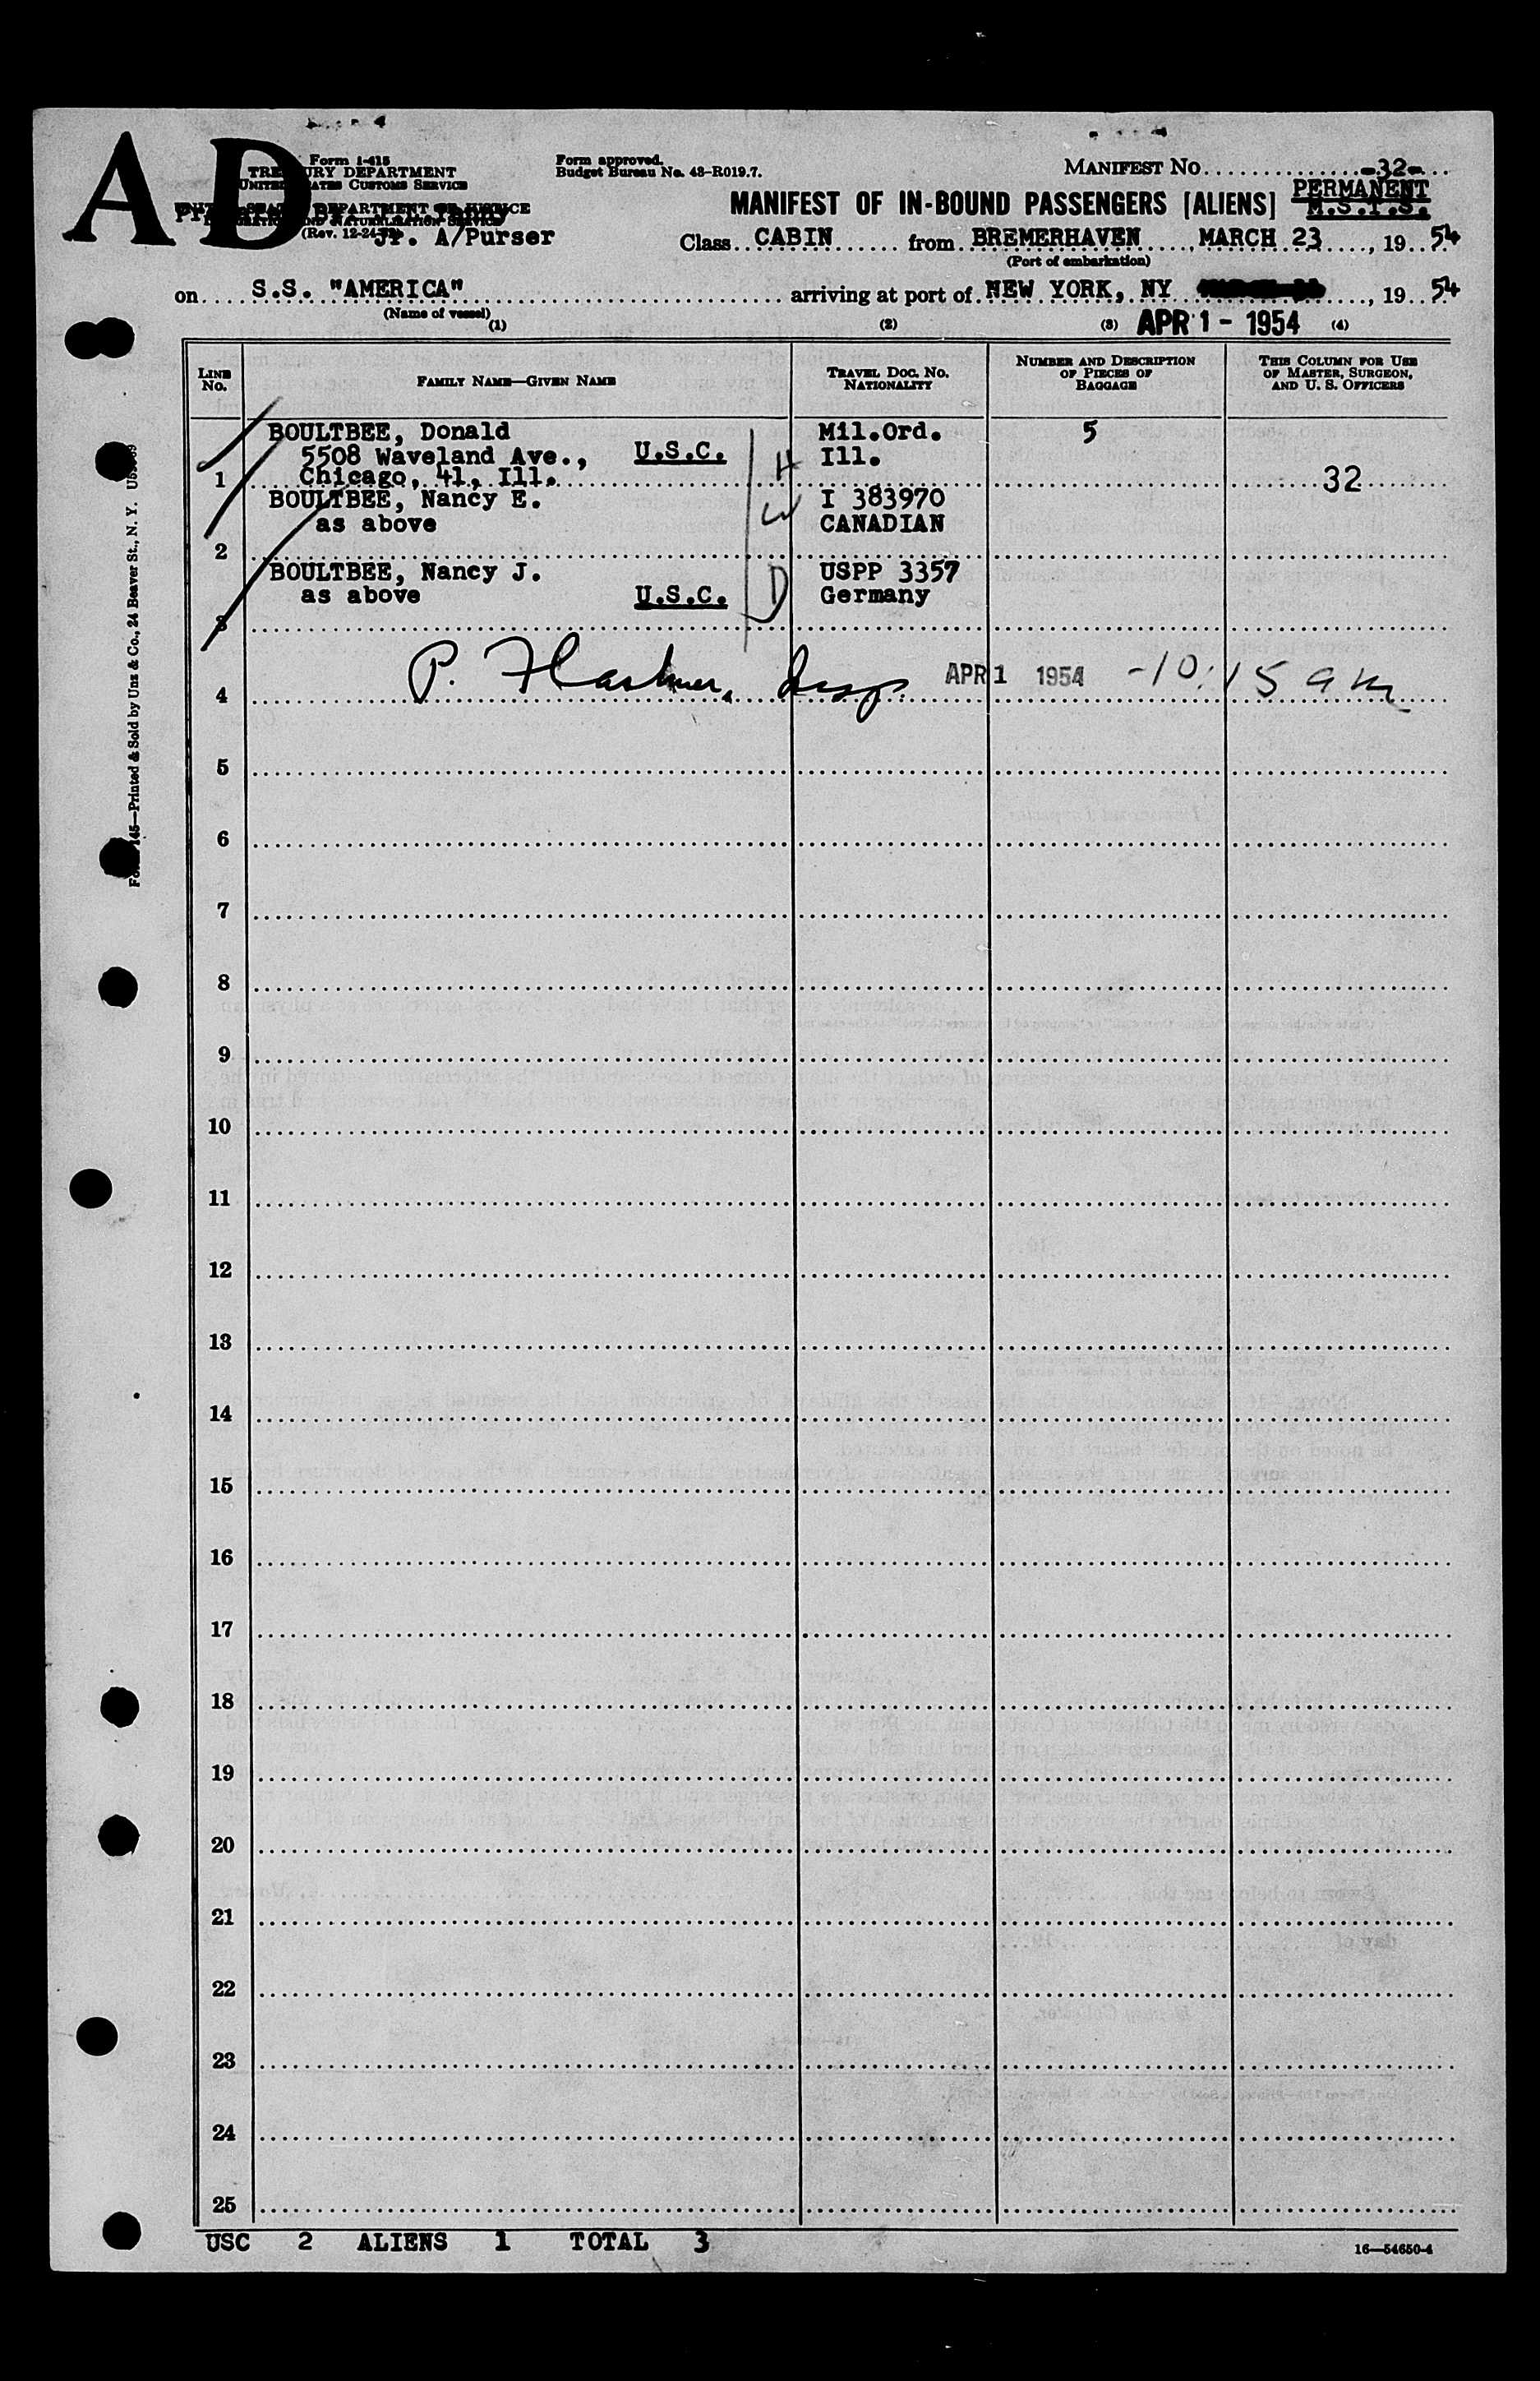 AD
Form I-415
TREASURY DEPARTMENT
UNITED STATES CUSTOMS SERVICE
UNITED STATES DEPARTMENT OF JUSTICE
IMMIGRATION AND NATURALIZATION SERVICE
(Rev. 12-24-
Jr. A/Purser
Form approved.
Budget Bureau No. 43-R019.7.
MANIFEST NO. -32-
PERMANENT
M.S.T.S.
MANIFEST OF IN-BOUND PASSENGERS [ALIENS]
Class CABIN from BREMERHAVEN, MARCH 23, 19 54
(Port of embarkation)
on S.S. "AMERICA" arriving at port of NEW YORK, NY, 19 54
(Name of vessel)
APR 1 - 1954
(1) (2) (3) (4)
LINE NO. FAMILY NAME—GIVEN NAME TRAVEL DOC. NO. NATIONALITY NUMBER AND DESCRIPTION OF PIECES OF BAGGAGE THIS COLUMN FOR USE OF MASTER, SURGEON, AND U. S. OFFICERS
BOULTBEE, Donald Mil.Ord. 5
5508 Waveland Ave., U.S.C. H Ill.
1 Chicago, 41, Ill. 32
BOULTBEE, Nancy E. W I 383970
as above CANADIAN
2
BOULTBEE, Nancy J. D USPP 3357
as above U.S.C. Germany
3
4 P. insp. APR 1 1954 -10:15 am
5
6
7
8
9
10
11
12
13
14
15
16
17
18
19
20
21
22
23
24
25
USC 2 ALIENS 1 TOTAL 3
16—54650-4
145—Printed & Sold by Unz & Co., 24 Beaver St., N. Y.